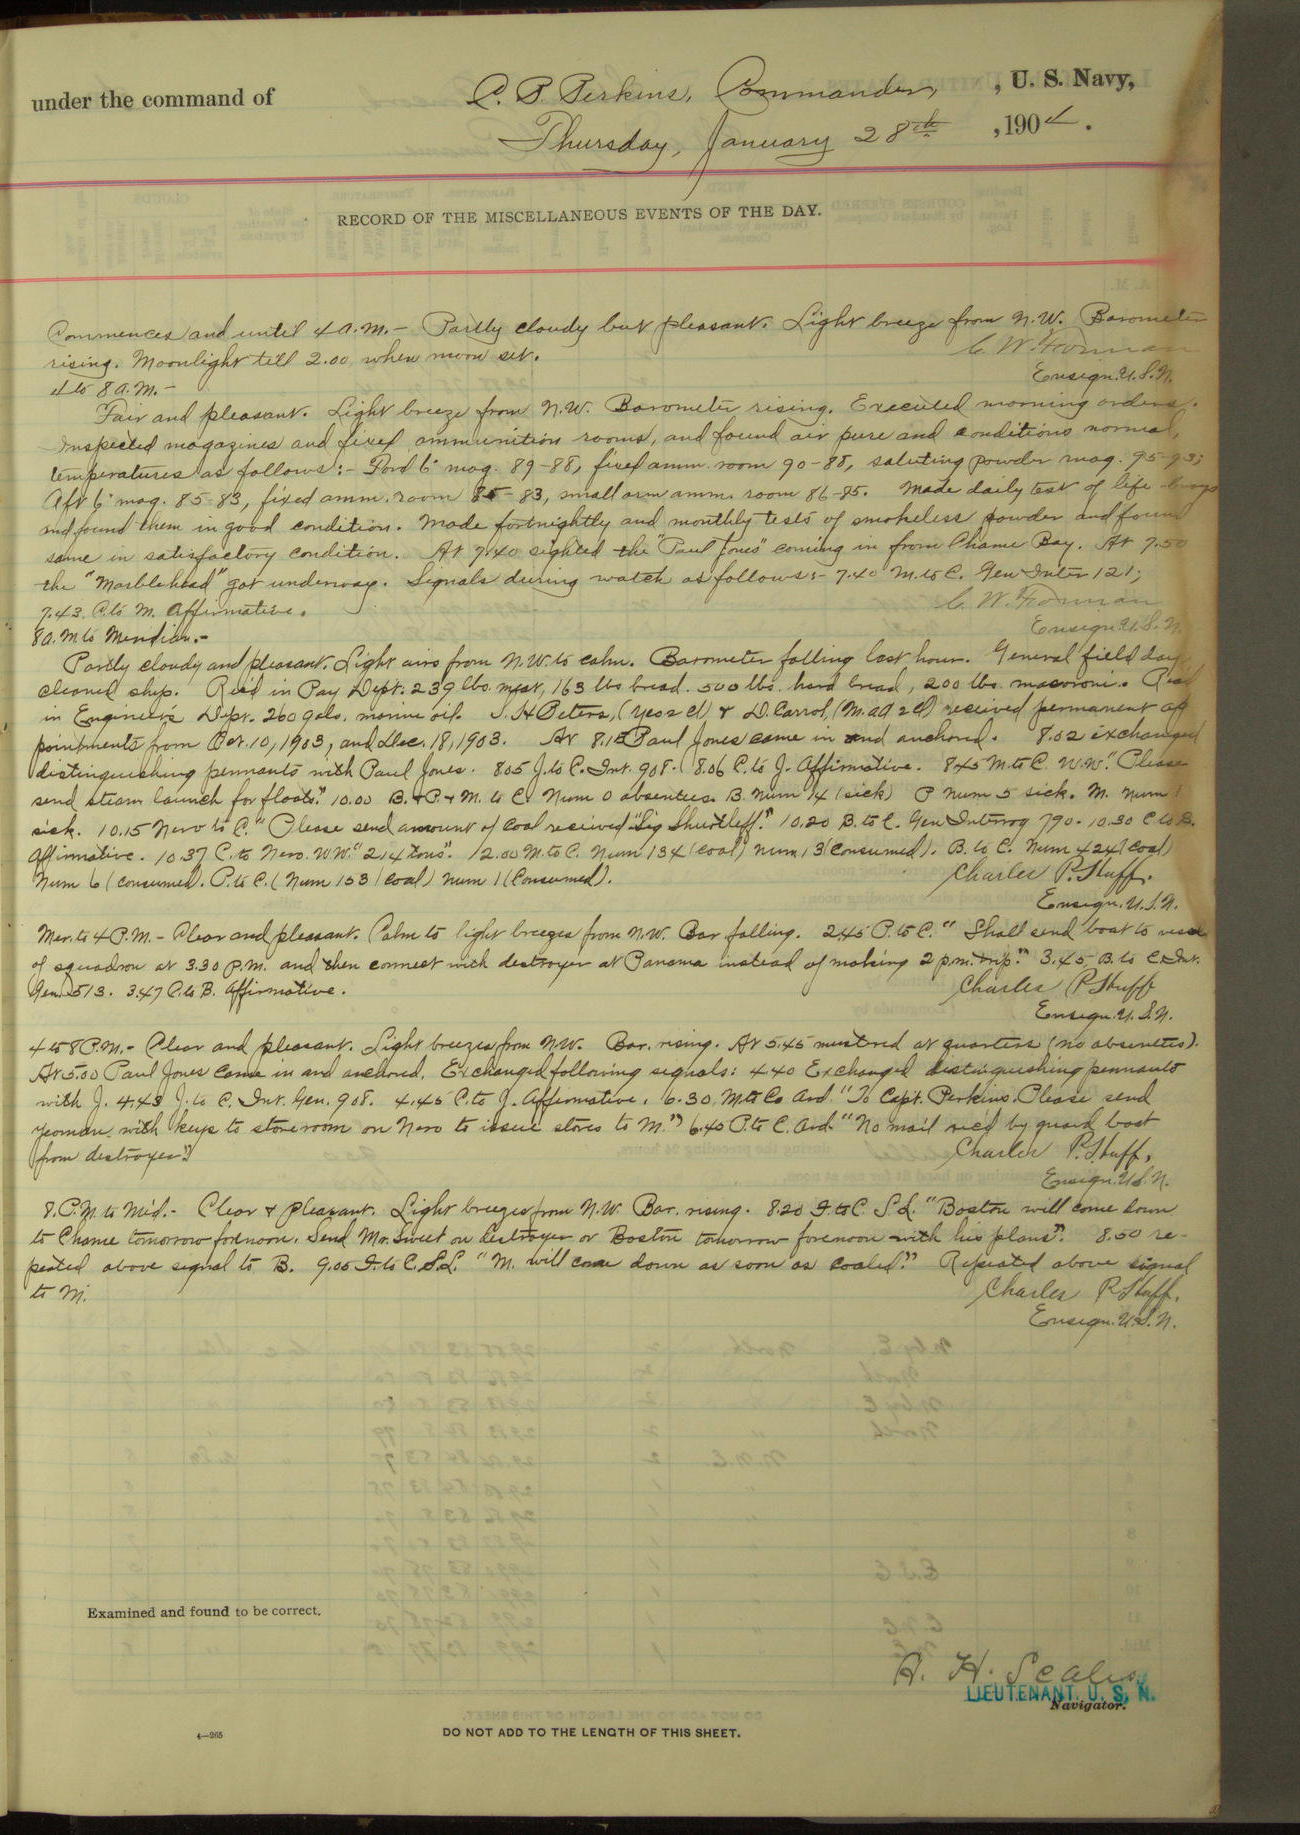 under the command of C. P. Perkins, Commander, , U. S. Navy,
Thursday, January 28th , 1904.
RECORD OF THE MISCELLANEOUS EVENTS OF THE DAY.
Commences and until 4 a.m.- Partly cloudy but pleasant. Light breeze from N.W. Barometer
rising. Moonlight till 2.00 when moon set. C. W. Forman
Ensign. U.S.N.
4 to 8 a.m.-
Fair and pleasant. Light breeze from N.W. Barometer rising. Executed morning orders.
Inspected magazines and fixed ammunition rooms, and found air pure and conditions normal,
temperatures as follows:- Ford 6" mag. 89-88, fixed amm. room 90-88, saluting powder mag. 95-93;
Aft 6" mag. 85-83, fixed amm. room 85-83, small arm amm. room 86-85. Made daily test of life buoys
and found them in good condition. Made fortnightly and monthly tests of smokeless powder and found
same in satisfactory condition. At 7.40 sighted the "Paul Jones" coming in from Chame Bay. At 7.50
the "Marblehead" got underway. Signals during watch as follows:- 7.40 M. to C. Gen Inter 121;
7.43 C. to M. Affirmative. C. W. Forman
Ensign U.S.N.
8 a.m. to Meridian.-
Partly cloudy and pleasant. Light airs from N.W. to calm. Barometer falling last hour. General field day
cleaned ship. Rec'd in Pay Dept. 239 lbs. meat, 163 lbs bread. 500 lbs. hard bread, 200 lbs. macoroni. Recd
in Engineer's Dept. 260 gals. marine oil. J. H. Peters, (Yeo 2 cl) & D. Carrol, (M.aa 2 cl) received permanent ap
pointments from Oct. 10, 1903, and Dec. 18, 1903. At 8.15 Paul Jones came in and anchored. 8.02 exchanged
distinguishing pennants with Paul Jones. 8.05 J. to C. Int. 908. 8.06 C. to J. Affirmative. 8.45 M. to C. W.W. "Please
send steam launch for floats." 10.00 B. + P. + M. to C. Num 0 absentees. B. num 14 (sick) P num 5 sick. M. num 1
sick. 10.15 Nero to C. "Please send amount of coal received" Sig Shurtleff." 10.20 B. to C. Gen Interrog 790. 10.30 C to B.
Affirmative. 10.37 C. to Nero. W.W. "214 tons". 12.00 M. to C. Num 134 (coal) num, 13 (consumed). B. to C. Num 424 (coal)
Num 6 (consumed). P. to C. (Num 153 (coal) num 11 (consumed). Charles P. Huff.
Ensign. U.S.N.
Mer. to 4 P.M.- Clear and pleasant. Calm to light breezes from N.W. Bar. falling. 2.45 P. to C. "Shall send boat to vessels
of squadron at 3.30 P.M. and then connect with destroyer at Panama instead of making 2 p.m. trip." 3.45 B. to C. Int.
Gen. 513. 3.47 C. to B. Affirmative. Charles P. Huff
Ensign. U.S.N.
4 to 8 P.M.- Clear and pleasant. Light breezes from N.W. Bar. rising. At 5.45 mustered at quarters (no absentees).
At 5.00 Paul Jones came in and anchored. Exchanged following signals: 4.40 Exchanged distinguishing pennants
with J. 4.43 J. to C. Int. Gen. 908. 4.45 C. to J. Affirmative. 6.30 M. to C. Ard. "To Capt. Perkins. Please send
yeoman with keys to storeroom on Nero to issue stores to M." 6.40 P. to C. Ard. "No mail rec'd by guard boat
from destroyer." Charles P. Huff,
Ensign. U.S.N.
8. P.M. to Mid.- Clear & pleasant. Light breezes from N.W. Bar. rising. 8.20 F. to C. S.L. "Boston will come down
to Chame tomorrow forenoon. Send Mr. Sweet on destroyer or Boston tomorrow forenoon with his plans". 8.50 re-
peated above signal to B. 9.05 F. to C. S.L. "M. will come down as soon as coaled." Repeated above signal
to M. Charles P. Huff.
Ensign. U.S.N.
Examined and found to be correct.
A. H. Scales,
LIEUTENANT, U. S. N.
Navigator.
4-265
DO NOT ADD TO THE LENGTH OF THIS SHEET.